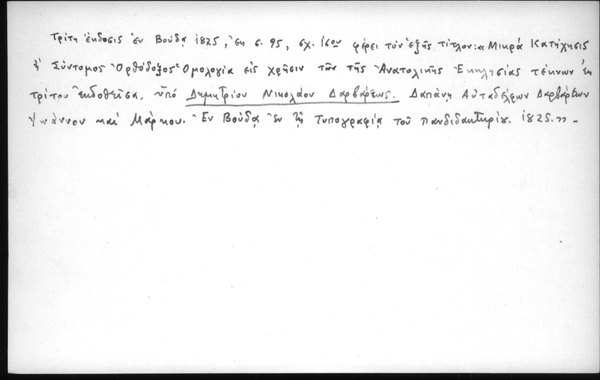 Τρίτη ἔκδοσις ἐν Βούδᾳ 1825, ἐκ σ. 95, σχ. 16ον φέρει τὸν ἑξῆς τίτλον: «Μικρὰ Κατήχησις
ἢ Σύντομος Ὀρθόδοξος Ὁμολογία εἰς χρῆσιν τῶν τῆς Ἀνατολικῆς Ἐκκλησίας τέκνων ἐκ
τρίτου ἐκδοθεῖσα, ὑπὸ Δημητρίου Νικολάου Δαρβάρεως. Δαπάνῃ Αὐταδέλφων Δαρβάρεων
Ἰωάννου καὶ Μάρκου. Ἐν Βούδᾳ ἐν τῇ Τυπογραφίᾳ τοῦ Πανδιδακτηρίου. 1825.» -